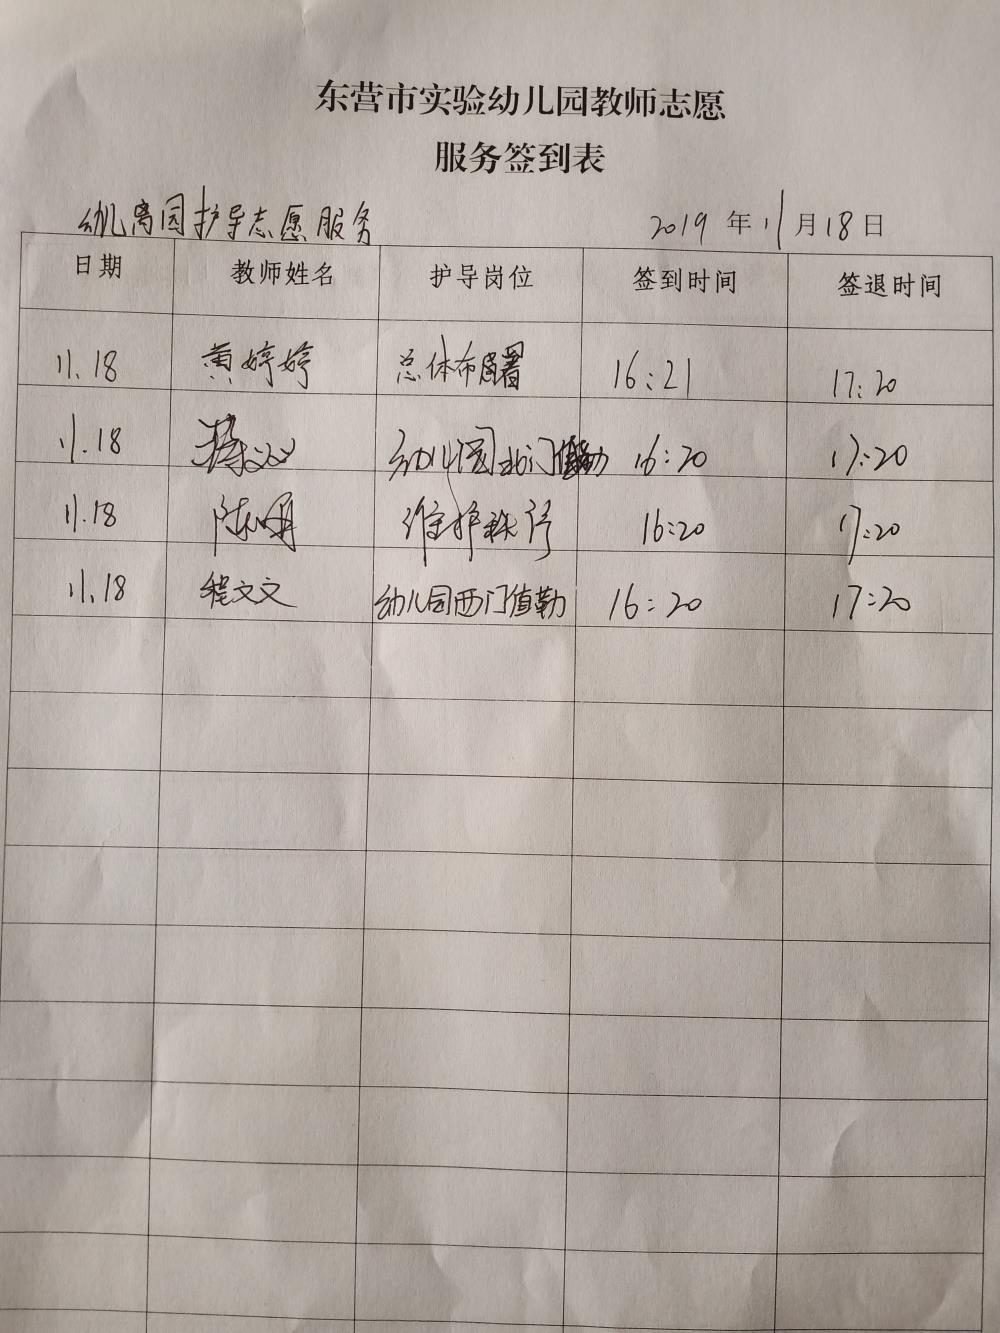 东营市实验幼儿园教师志愿
服务签到表
幼儿离园护导志愿服务 2019年11月18日
日期 教师姓名 护导岗位 签到时间 签退时间
11.18 黄婷婷 总体布署 16:21 17:20
11.18 幼儿园北门值勤 16:20 17:20
11.18 陈明 维护秩序 16:20 17:20
11.18 程文文 幼儿园西门值勤 16:20 17:20